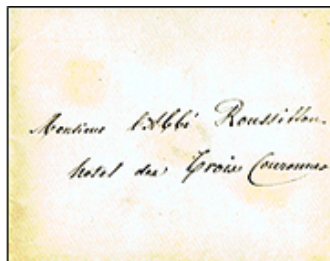 Monsieur l'Abbé Roussillon.
hotel des Trois Couronnes